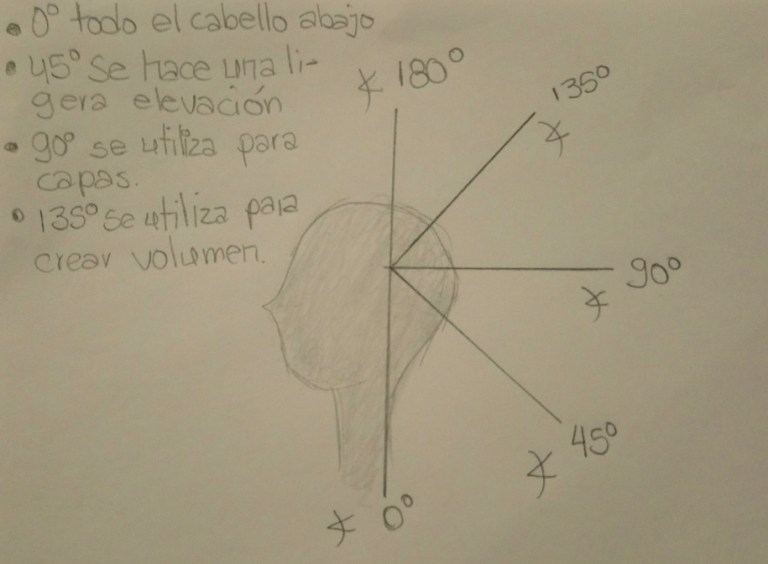 • 0° todo el cabello abajo
• 45° Se hace una li-
gera elevación
• 90° se utiliza para
capas.
• 135° se utiliza para
crear volumen.
∡ 180°
135°
∡
90°
∡
45°
∡
∡ 0°